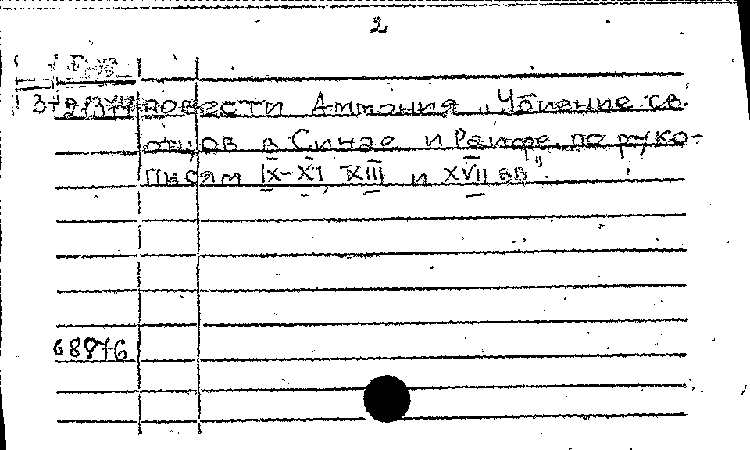 2
повести Аммония „Убиение св.
отцов в Синае и Раифе по руко-
писям IX-XI XIII и XVII вв".
68876